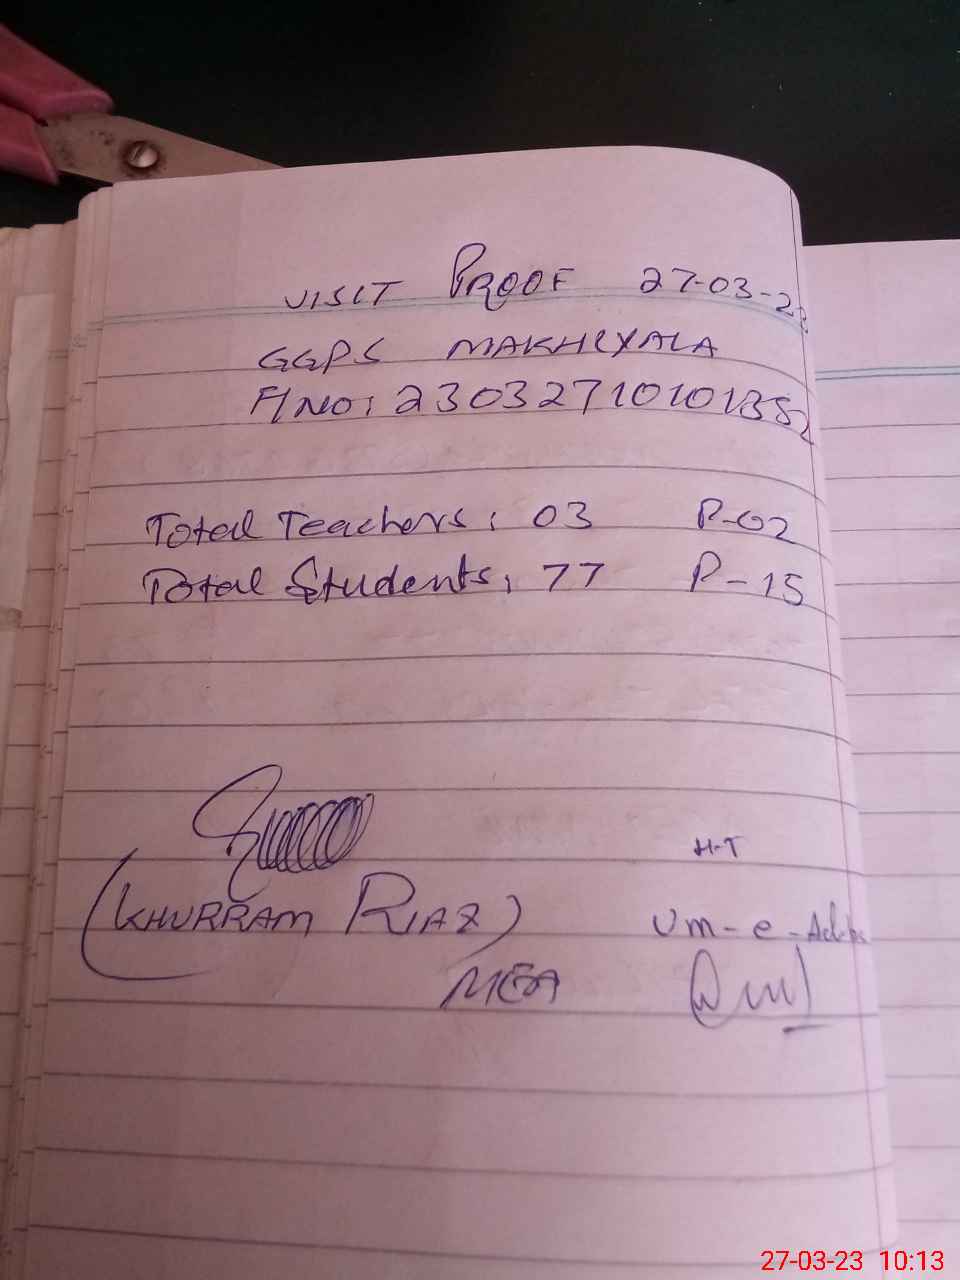 VISIT PROOF 27-03-23
GGPS MAKHIYALA
F/NO: 23032710101352
Total Teachers: 03 P-02
Total Students: 77 P-15
H-T
(KHURRAM RIAZ) Um-e-
MEA
27-03-23 10:13